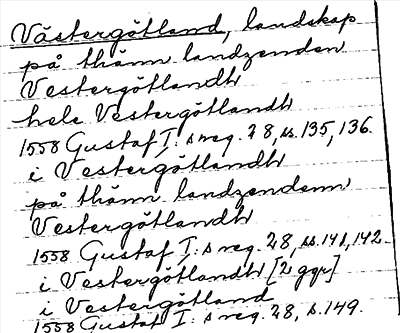 Västergötland, landskap
på thänn landzenden
Vestergötlandh
hele Vestergötlandh
1558 Gustaf I:s reg. 28, ss. 135, 136.
i Vestergötlandh
på thänn landzendenn
Vestergötlandh
1558 Gustaf I:s reg. 28, ss. 141, 142
i Vestergötlandh [2 ggr]
i Vestergötland
1558 Gustaf I:s reg. 28, s. 149.